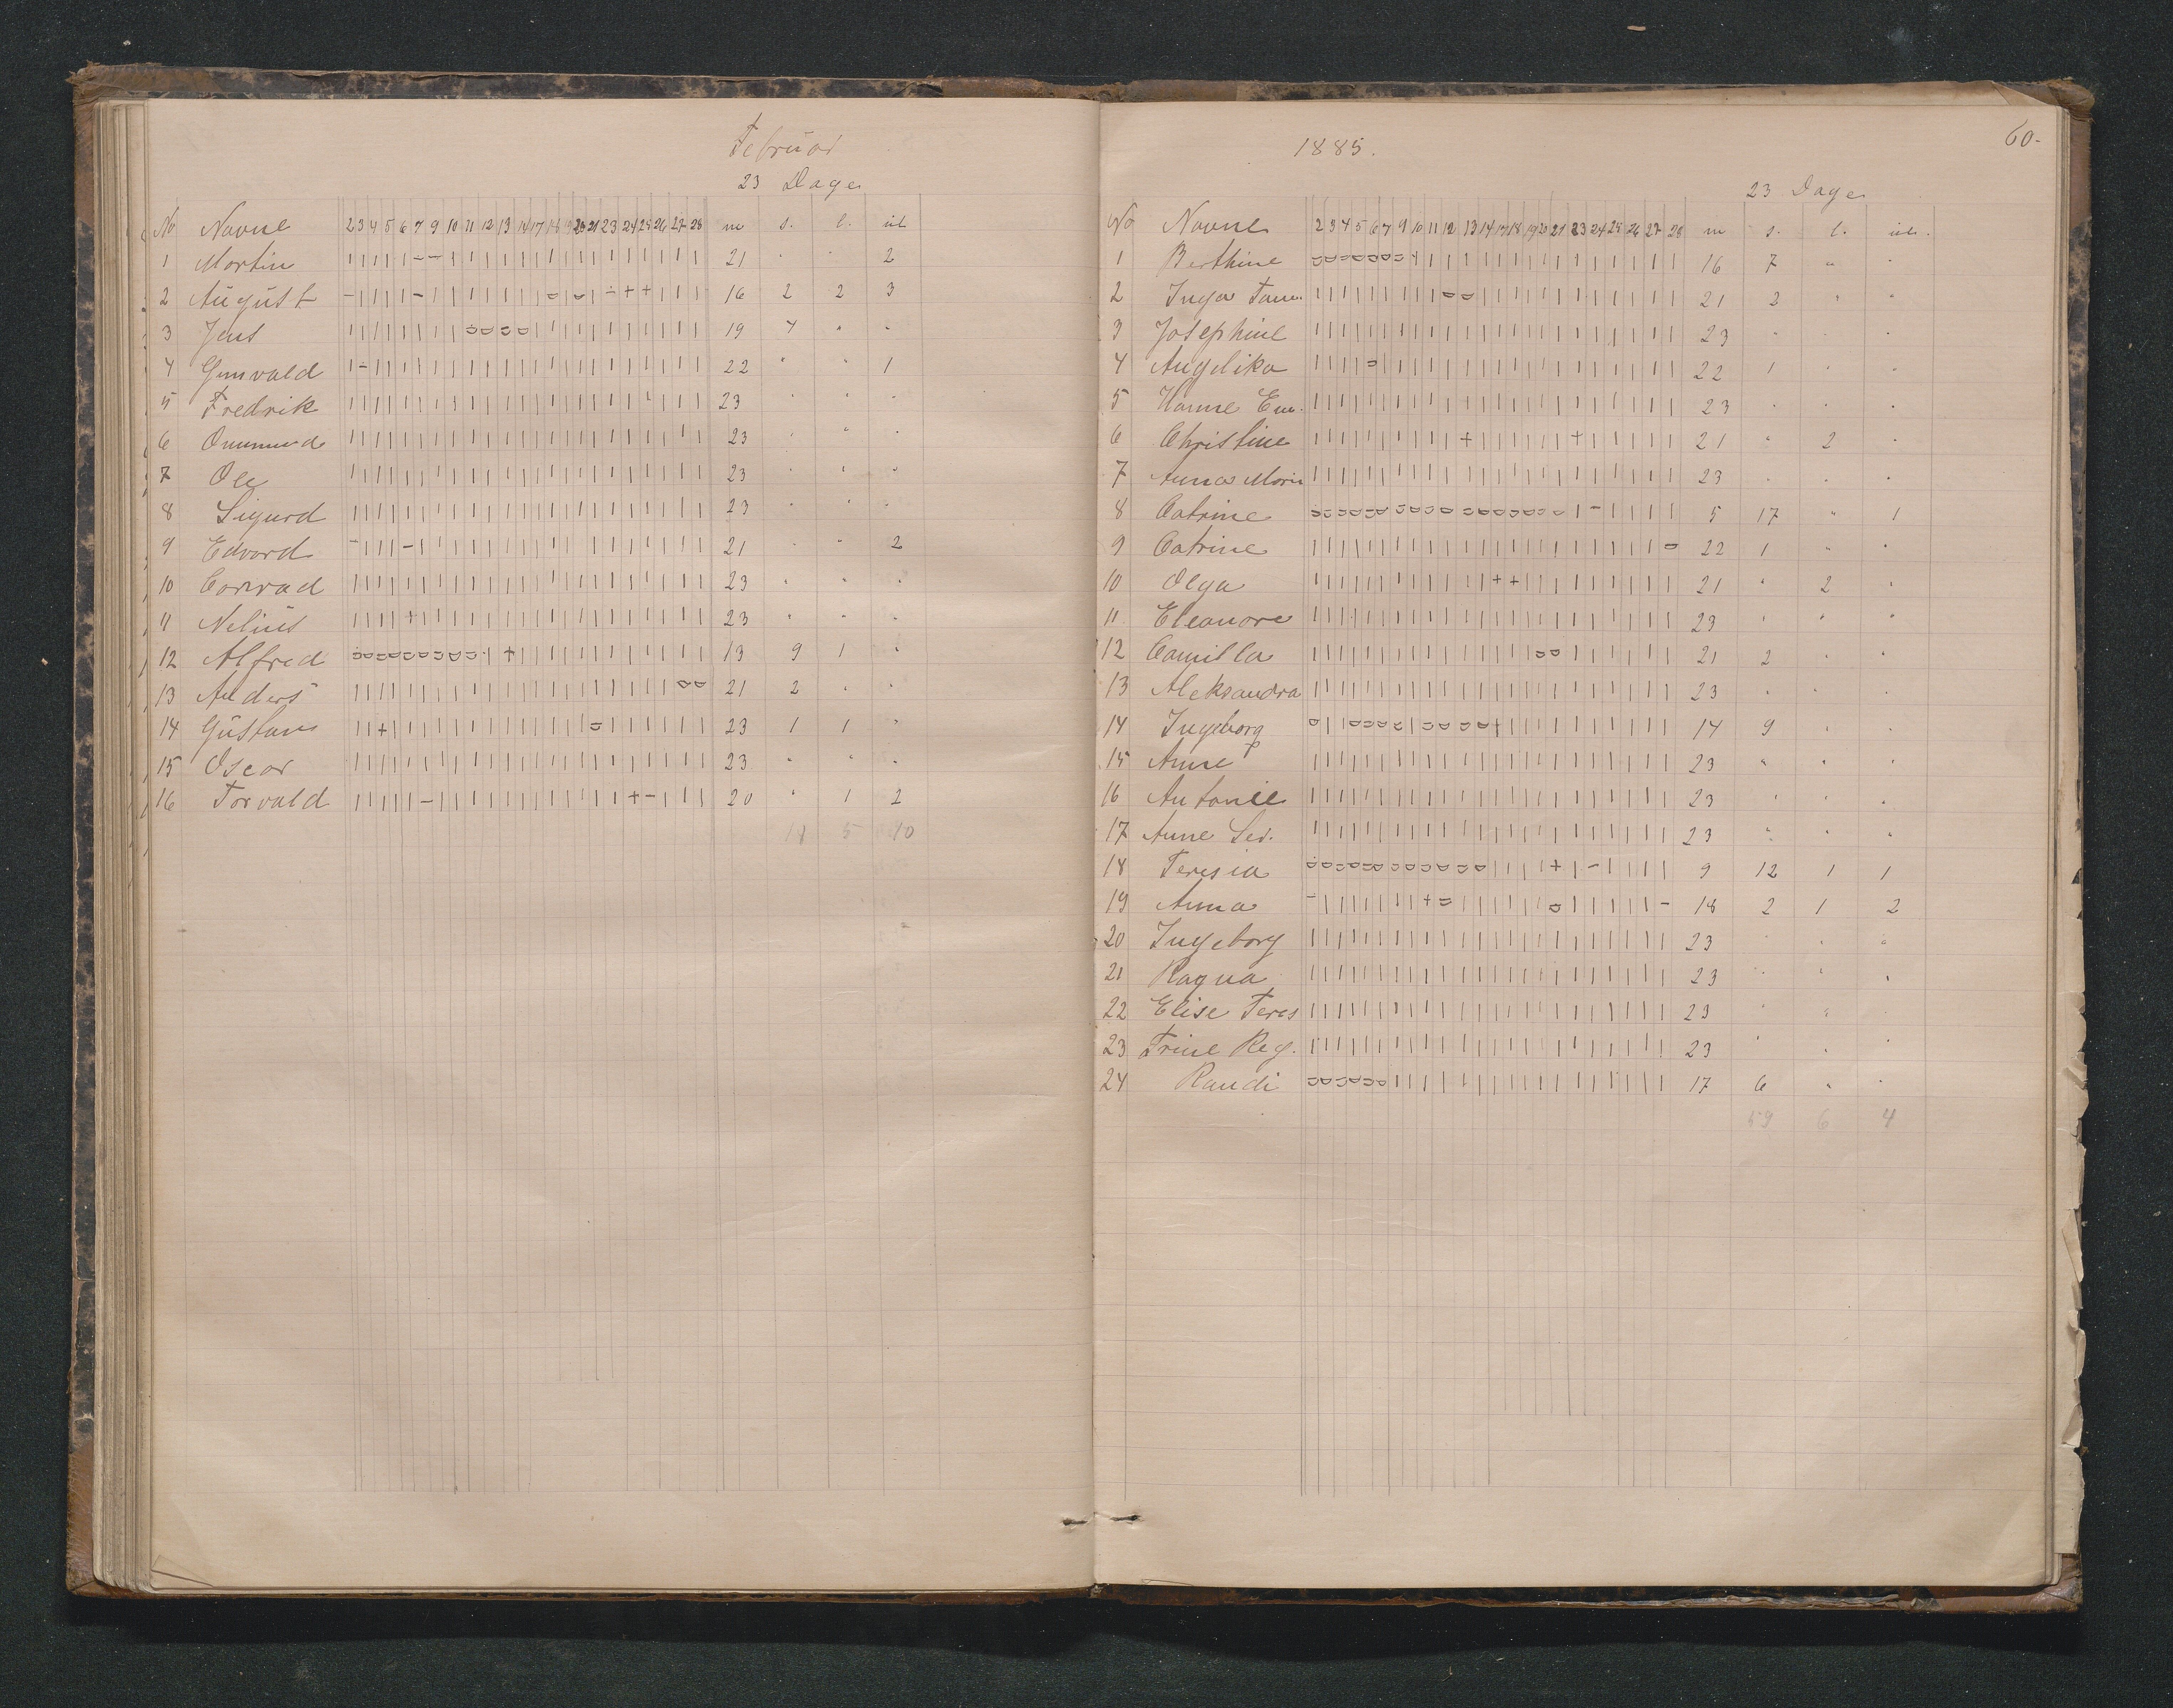 Februar
23 Dage
No Navne 2 3 4 5 6 7 9 10 11 12 13 14 17 18 19 20 21 23 24 25 26 27 28 m s. l. ul
1 Martin | | | | | - - | | | | | | | | | | | | | | | | 21 " " 2
2 August 16 2 2 3
3 Jens 19 4 " "
4 Gunvald 22 " " 1
5 Fredrik 23 " " "
6 Ommund 23 " " "
7 Ole 23 " " "
8 Sigurd 23 " " "
9 Edvard 21 " " 2
10 Conrad 23 " " "
11 Nelius 23 " " "
12 Alfred 13 9 1 "
13 Anders 21 2 " "
14 Gustav 23 1 1 "
15 Oscar 23 " " "
16 Torvald 20 " 1 2
5 10
1885.
60-
23 Dage
No Navne 2 3 4 5 6 7 9 10 11 12 13 14 17 18 19 20 21 23 24 25 26 27 28 m s. l. ul.
1 Berthine 16 7 " "
2 Inga Tom. 21 2 " "
3 Josephine 23 " " "
4 Angelika 22 1 " "
5 Hanne Em. 23 " " "
6 Christine 21 " 2 "
7 Anna Marie 23 " " "
8 Catrine 5 17 " 1
9 Catrine 22 1 " "
10 Olga 21 " 2 "
11 Eleanore 23 " " "
12 Camilla 21 2 " "
13 Aleksandra 23 " " "
14 Ingeborg 14 9 " "
15 Anne P 23 " " "
16 Antonie 23 " " "
17 Anne Ser. 23 " " "
18 Teresia 9 12 1 1
19 Anna 18 2 1 2
20 Ingeborg 23 " " "
21 Ragna 23 " " "
22 Elise Teres 23 " " "
23 Trine Reg. 23 " " "
24 Randi 17 6 " "
59 6 4